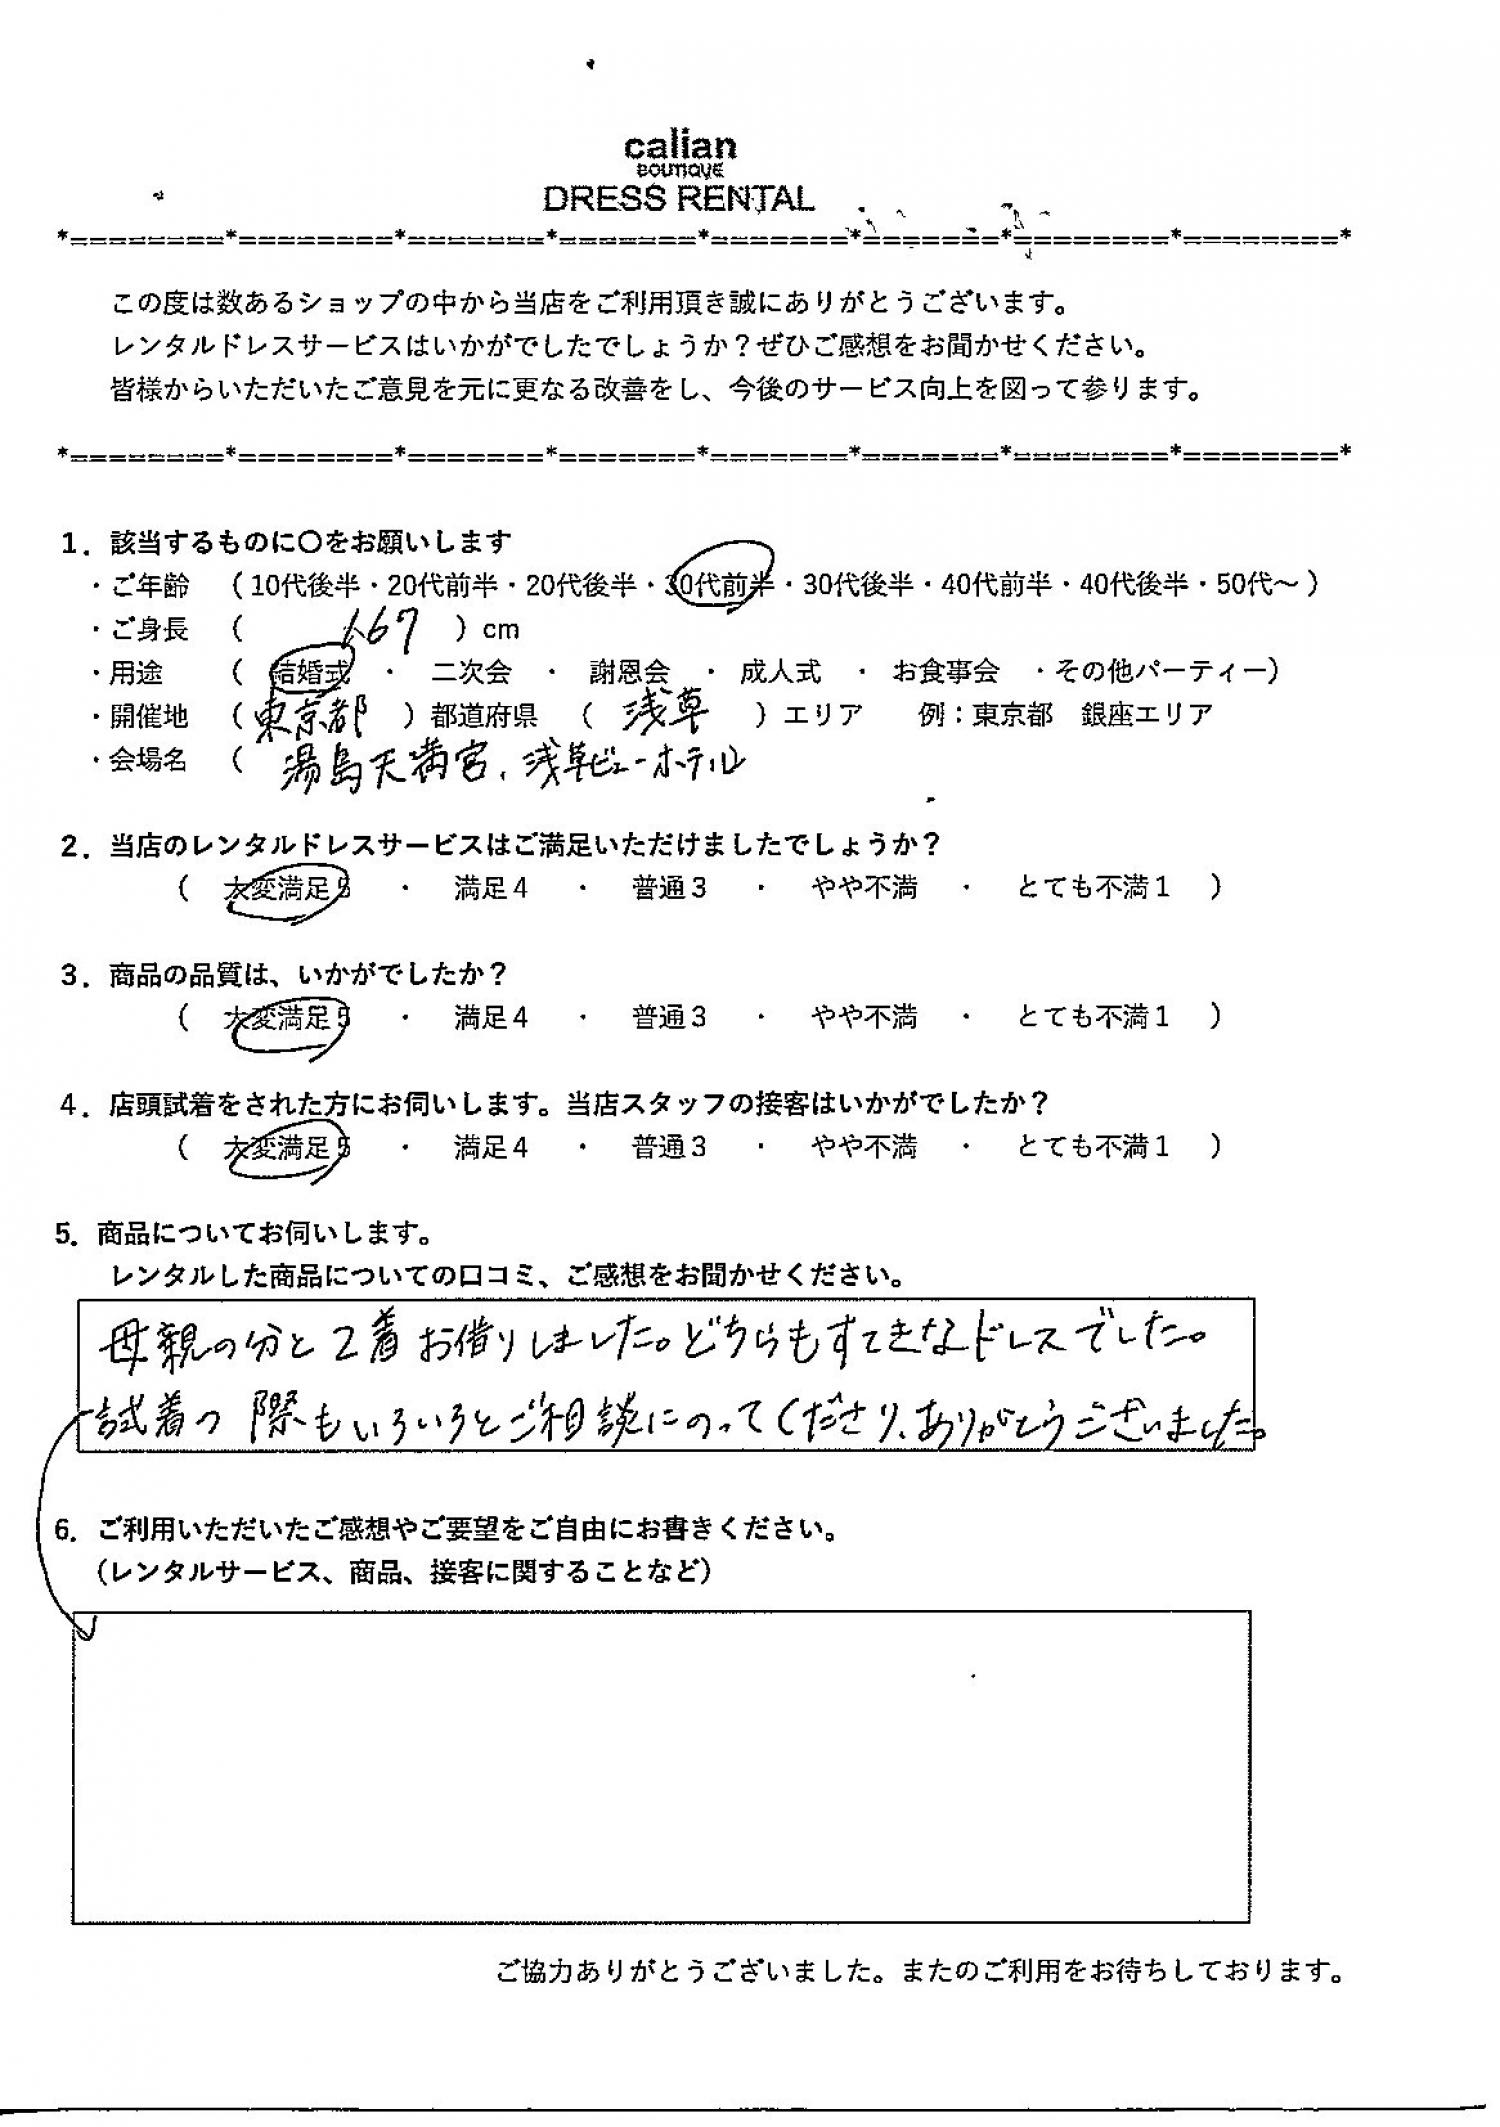 calian
BOUTIQUE
DRESS RENTAL
*========*========*=======*=======*=======*=======*========*========*
この度は数あるショップの中から当店をご利用頂き誠にありがとうございます。
レンタルドレスサービスはいかがでしたでしょうか？ぜひご感想をお聞かせください。
皆様からいただいたご意見を元に更なる改善をし、今後のサービス向上を図って参ります。
*========*========*=======*=======*=======*=======*========*========*
1．該当するものに〇をお願いします
・ご年齢 （10代後半・20代前半・20代後半・30代前半・30代後半・40代前半・40代後半・50代～）
・ご身長 （ 167 ）cm
・用途 （ 結婚式 ・ 二次会 ・ 謝恩会 ・ 成人式 ・ お食事会 ・その他パーティー）
・開催地 （ 東京都 ）都道府県 （ 浅草 ）エリア 例：東京都 銀座エリア
・会場名 （ 湯島天満宮、浅草ビューホテル
2．当店のレンタルドレスサービスはご満足いただけましたでしょうか？
（ 大変満足5 ・ 満足4 ・ 普通3 ・ やや不満 ・ とても不満1 ）
3．商品の品質は、いかがでしたか？
（ 大変満足5 ・ 満足4 ・ 普通3 ・ やや不満 ・ とても不満1 ）
4．店頭試着をされた方にお伺いします。当店スタッフの接客はいかがでしたか？
（ 大変満足5 ・ 満足4 ・ 普通3 ・ やや不満 ・ とても不満1 ）
5．商品についてお伺いします。
レンタルした商品についての口コミ、ご感想をお聞かせください。
母親の分と2着お借りしました。どちらもすてきなドレスでした。
試着の際もいろいろとご相談にのってくださり、ありがとうございました。
6．ご利用いただいたご感想やご要望をご自由にお書きください。
（レンタルサービス、商品、接客に関することなど）
ご協力ありがとうございました。またのご利用をお待ちしております。